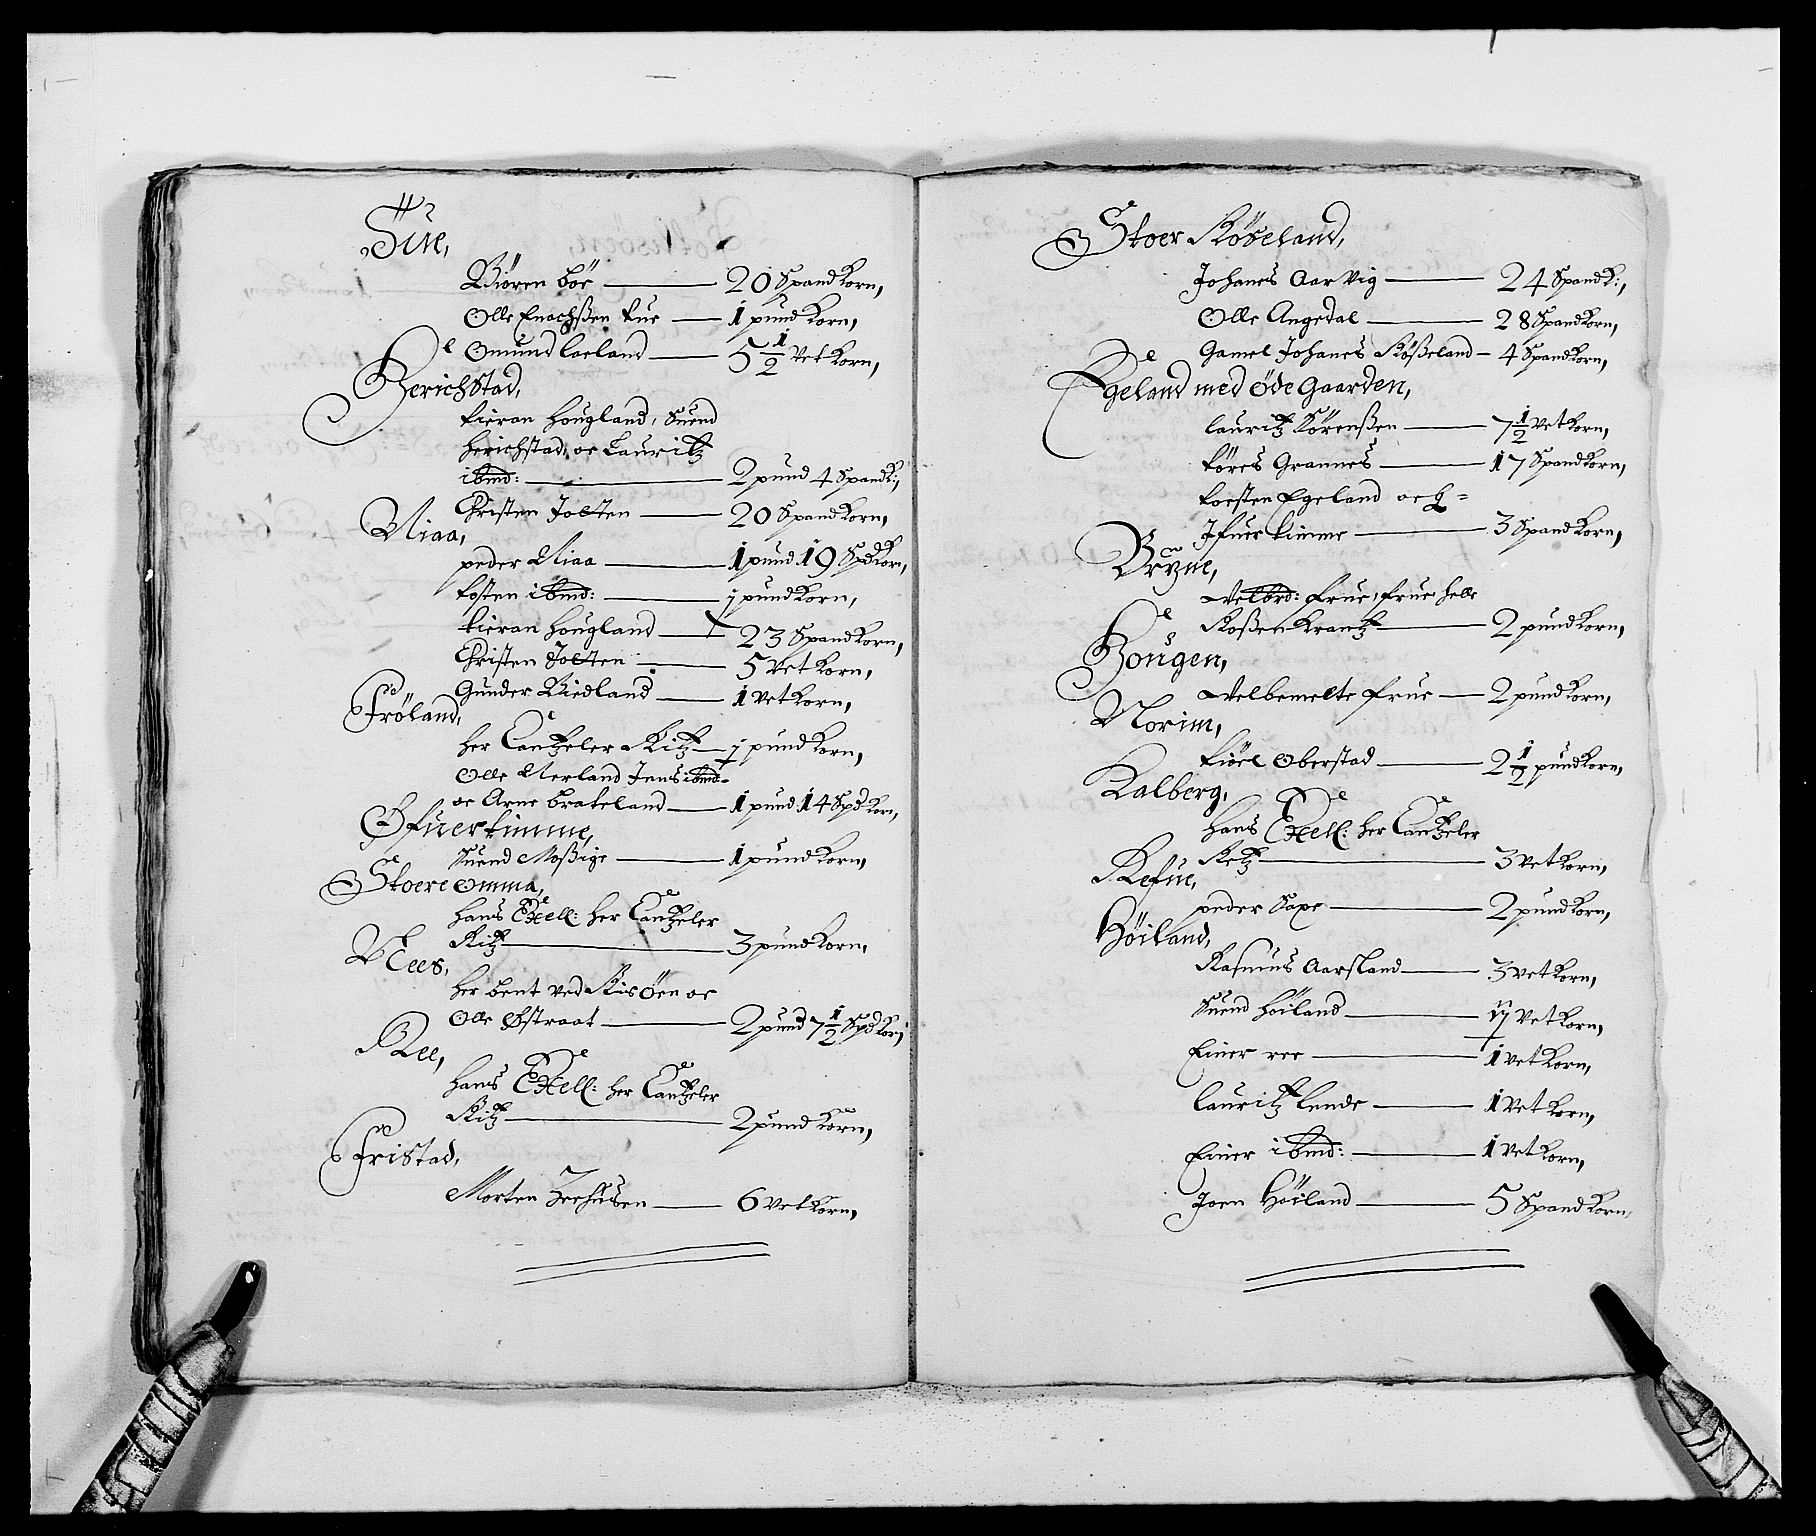 Tue,
Biören böe — 20 Spand Korn,
Olle Enochßen tue — 1 pund Korn,
Omund laeland — 5 1/2 Vet Korn,
Herichstad,
tieran Hougland, Suend
herichstad, oc Lauritz
ibmd: — 2 pund 4 Spand K:,
Christen Jolten — 20 Spand Korn,
Niaa,
peder Niaa — 1 pund 19 Spd Korn,
tosten ibmd: — 1 pund Korn,
tieran Hougland — 23 Spand Korn,
Christen Jolten — 5 Vet Korn,
Gunder Riedland — 1 Vet Korn,
Fröland,
her Cantzeler Ritz — 1 pund Korn,
Olle Nerland Jens ibmd
oc Arne brateland — 1 pund 14 Spd Korn,
Øfuertimme,
Suend Moßige — 1 pund Korn,
Stoere omma,
hans Exell: her Cantzeler
Ritz — 3 pund Korn,
Nees,
her bent ved Risöen oc
Olle Østraat — 2 pund 7 1/2 Spd Kor:
Ree,
hans Exell: her Cantzeler
Ritz — 2 pund Korn,
Fristad,
Morten Zeehusen — 6 Vet Korn,
Stoer Röseland,
Johanes Aarvig — 24 Spand K:,
Olle Angedal — 28 Spand Korn,
Gamel Johanes Rößeland — 4 Spand Korn,
Egeland med Öde Gaarden,
lauritz Sörenßen — 7 1/2 Vet Korn,
töres Grannes — 17 Spand Korn,
torsten Egeland oc
Ifuer timme — 3 Spand Korn,
Bryne,
Velbrd: frue, frue helle
Roßen Krantz — 2 pund Korn,
Hougen,
Velbemelte frue — 2 pund Korn,
Norim,
tiöel Oberstad — 2 1/2 pund Korn,
Kalberg,
hans Exell: her Cantzeler
Retz — 3 Vet Korn,
Refue,
peder Saxe — 2 pund Korn,
Höiland,
Rasmus Aarsland — 3 Vet Korn,
Suend Höiland — Vet Korn,
Einer ree — 1 Vet Korn,
lauritz lende — 1 Vet Korn,
Einer ibmd: — 1 Vet Korn,
Joen Höiland — 5 Spand Korn,